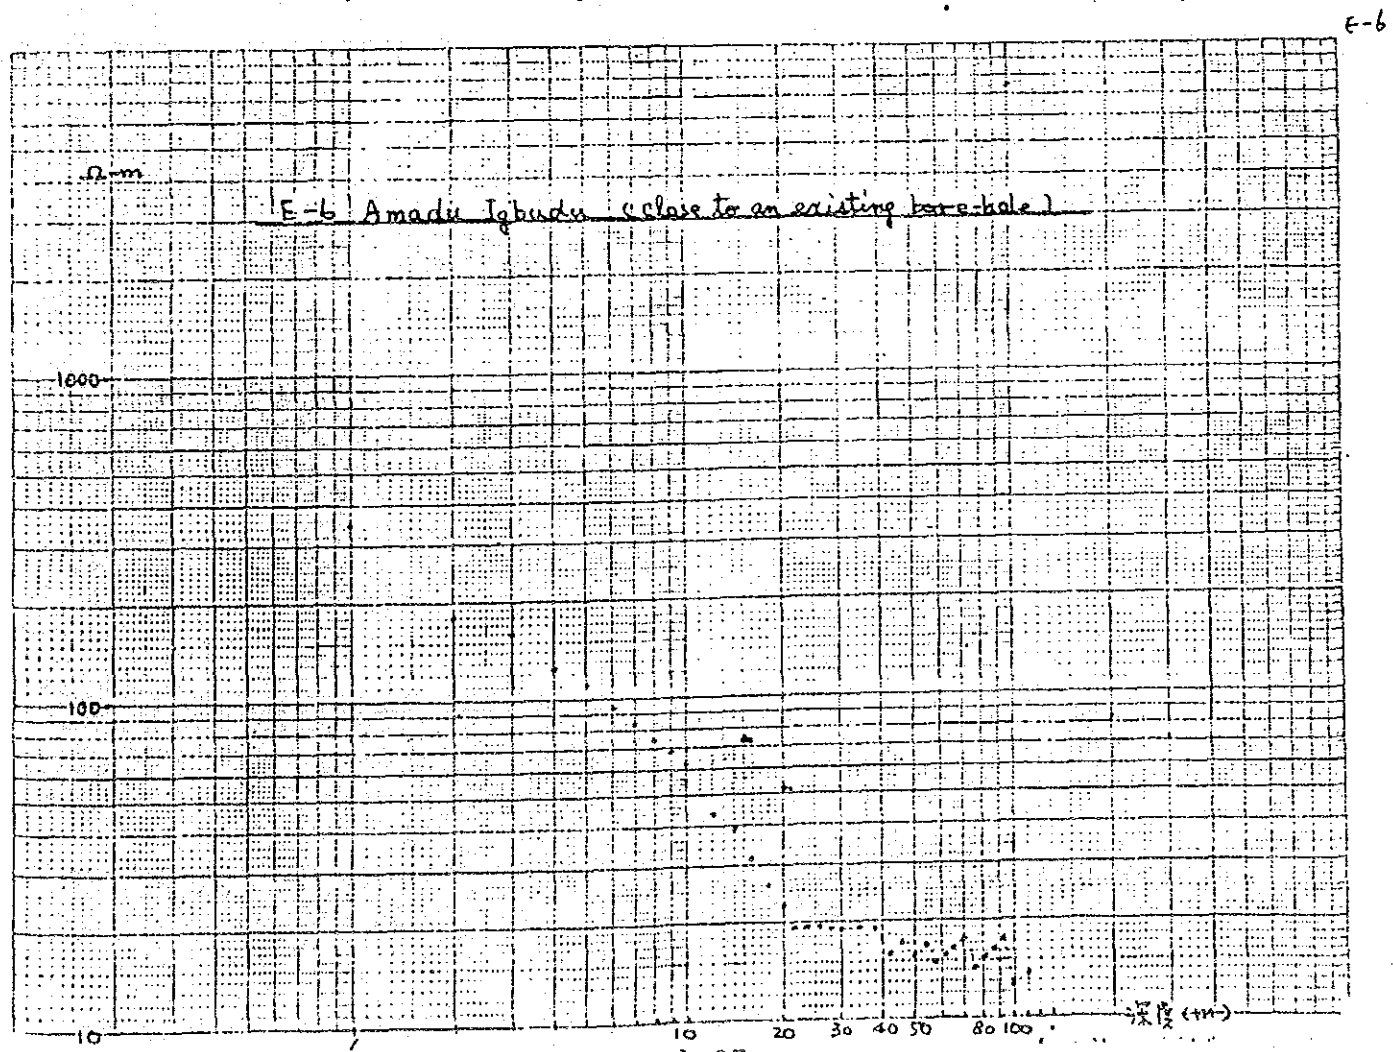 E-6
Ω-m
E-6 Amadu Igbudu (close to an existing bore-hole)
1000
100
10
1 10 20 30 40 50 80 100 深度(m)